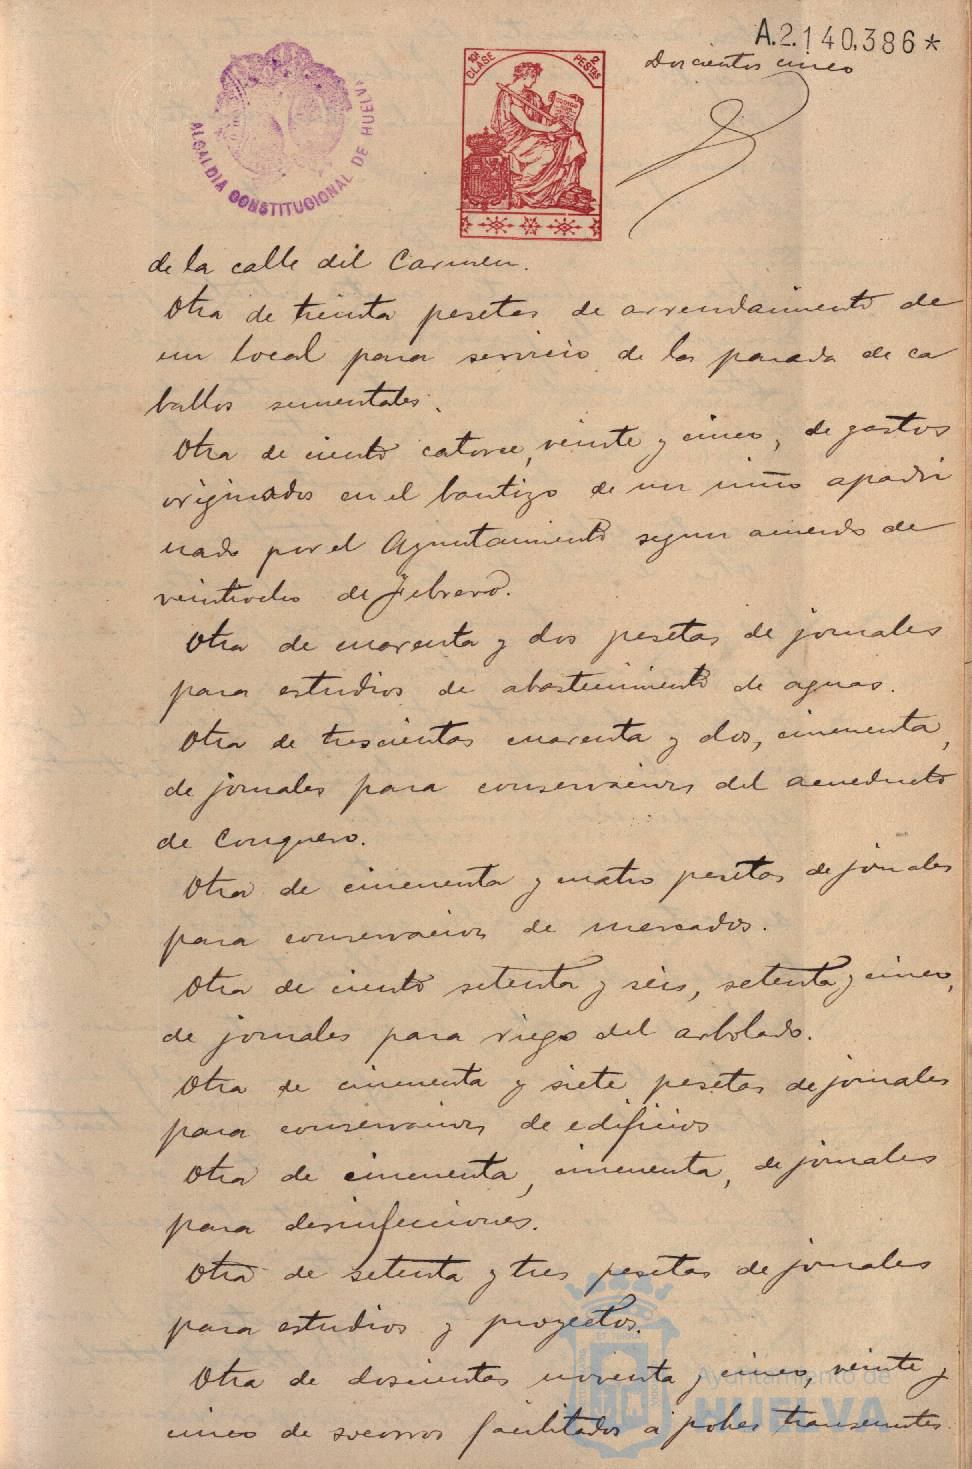 A.2.140,386*
Doscientos cinco
ALCALDIA CONSTITUCIONAL DE HUELVA
10ª CLASE
2 PESETAS
de la calle del Carmen.
Otra de treinta pesetas de arrendamiento de
un local para servicio de la parada de ca
ballos sementales.
Otra de ciento catorce, veinte y cinco, de gastos
originados en el bautizo de un niño apadri
nado por el Ayuntamiento segun acuerdo de
veintiocho de Febrero.
Otra de cuarenta y dos pesetas de jornales
para estudios de abastecimiento de aguas.
Otra de trescientas cuarenta y dos, cincuenta,
de jornales para conservacion del acueducto
de Conquero.
Otra de cincuenta y cuatro pesetas de jornales
para conservacion de mercados.
Otra de ciento setenta y seis, setenta y cinco,
de jornales para riego del arbolado.
Otra de cincuenta y siete pesetas de jornales
para conservacion de edificios
Otra de cincuenta, cincuenta, de jornales
para desinfecciones.
Otra de setenta y tres pesetas de jornales
para estudios y proyectos.
Otra de doscientas noventa y cinco, veinte y
cinco de socorros facilitados a pobres transeuntes.
Ayuntamiento de
HUELVA